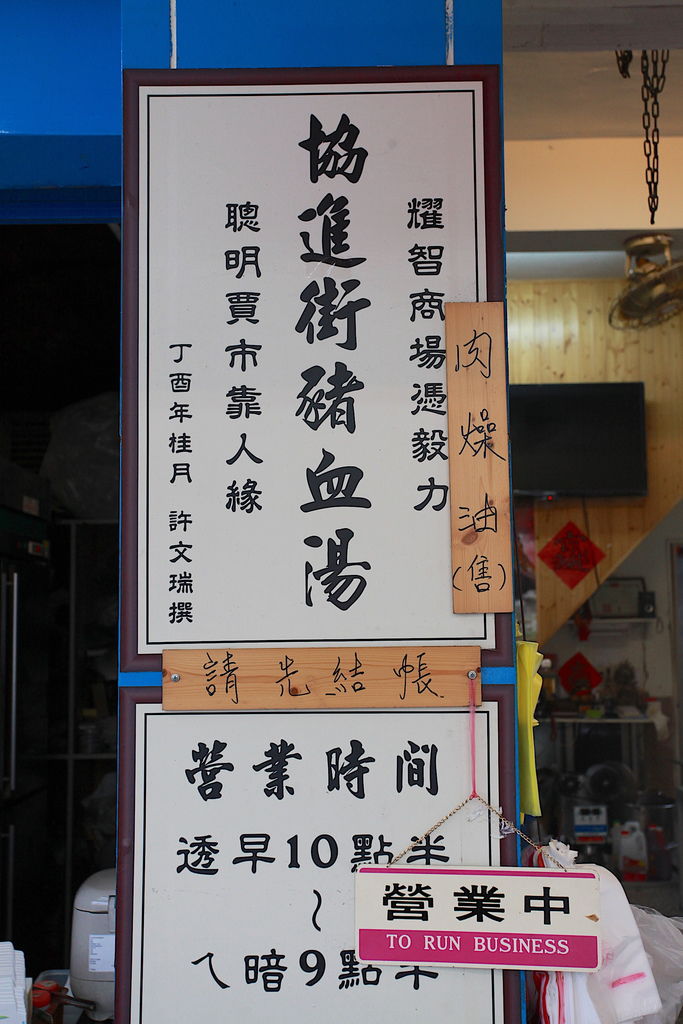 耀智商場憑毅力
協進街豬血湯
聰明賈市靠人緣
丁酉年桂月 許文瑞撰
肉燥油(售)
請先結帳
營業時間
透早10點半
~
ㄟ暗9點半
營業中
TO RUN BUSINESS